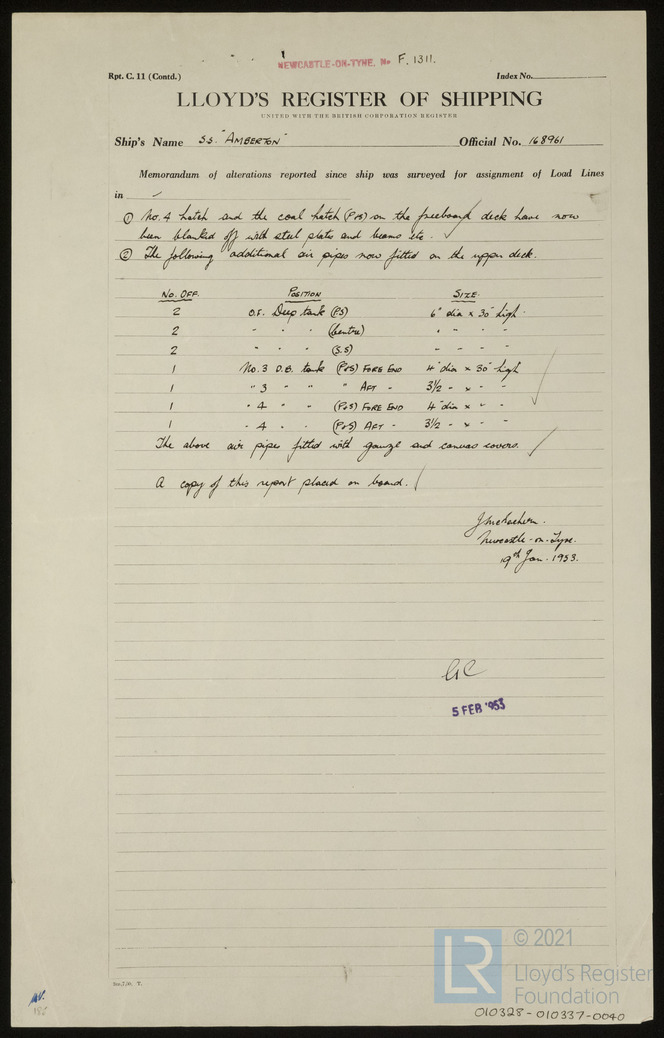 NEWCASTLE-ON-TYNE. No F. 1311.
Rpt. C. 11 (Contd.) Index No.
LLOYD'S REGISTER OF SHIPPING
UNITED WITH THE BRITISH CORPORATION REGISTER
Ship's Name S.S. "AMBERTON" Official No. 168961
Memorandum of alterations reported since ship was surveyed for assignment of Load Lines
in
① No. 4 hatch and the coal hatch (P&S) on the freeboard deck have now
been blanked off with steel plates and beams etc.
② The following additional air pipes now fitted on the upper deck.
No. OFF. POSITION SIZE.
2 O.F. Deep tank (PS) 6" dia x 30" high.
2 " " " (Centre) " " " "
2 " " " (S.S) " " " "
1 No. 3 D.B. tank (P&S) FORE END 4" dia x 30" high
1 " 3 " " " AFT " 3½ " x " "
1 " 4 " " (P&S) FORE END 4" dia x " "
1 " 4 " " (P&S) AFT " 3½ " x " "
The above air pipes fitted with gauze and canvas covers.
A copy of this report placed on board.
Newcastle-on-Tyne.
19th Jan. 1953.
5 FEB 1953
© 2021
LR
Lloyd's Register
Foundation
010328-010337-0040